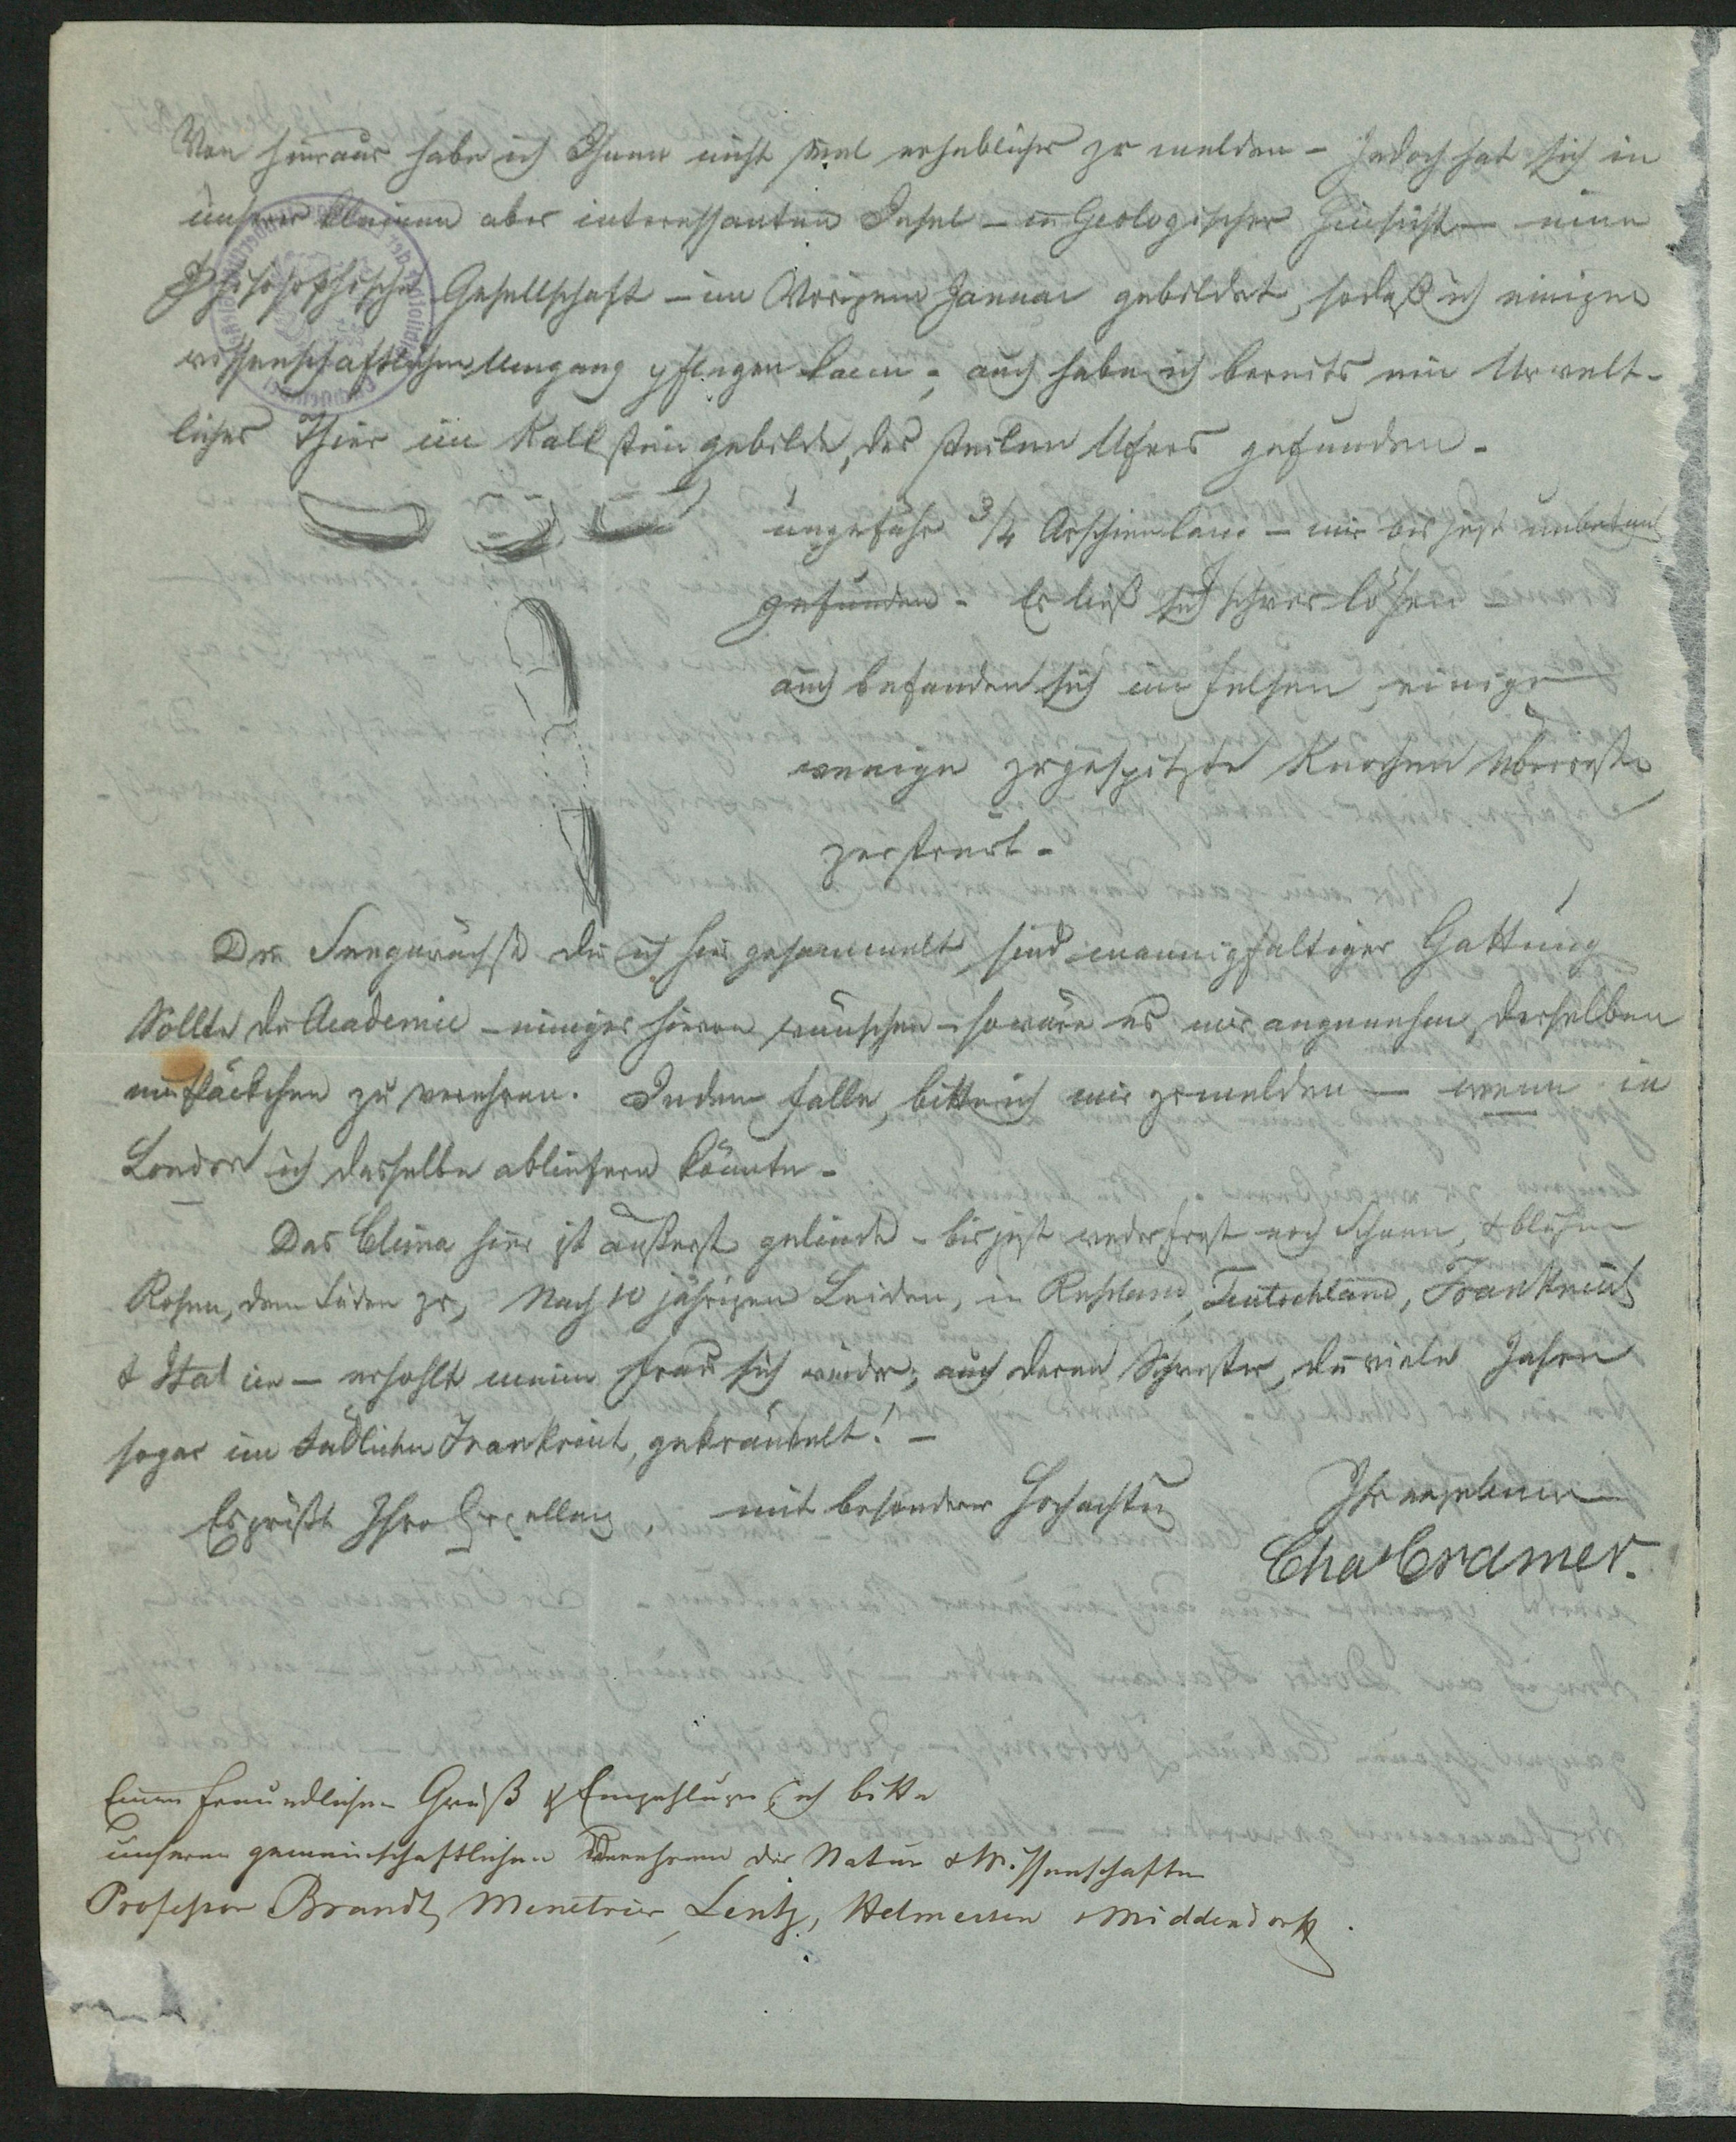 Von hieraus habe ich Ihnen nicht viel erhebliches zu melden - Jedoch hat sich in
unserer kleinen aber interessanten Insel - in Geologischer Hinsicht - eine
Philosophische Gesellschaft - im Vorigen Januar gebildet, sodaß ich einigen
wissenschaftlichen Umgang pflegen kann; auch habe ich bereits ein Urwelt-
liches Thier im Kalksteingebilde, des steilen Ufers gefunden -
ungefähr 3/4 Arschien lang - mir bis jetzt unbekant
gefunden - Es ließ sich schwer lösen -
auch befanden sich im Felsen einige
wenige zugespitzte Knochen Überreste
zerstreut -
Die Seegewächse die ich hier gesammelt sind mannigfaltiger Gattung
Sollte die Academie - einiges hievon wünschen - so wäre es mir angenehm derselben
ein Päckchen zu verehren. In dem Falle, bitte ich mir zu melden - wem in
London ich dasselbe abliefern könnte -
Das Clima hier ist äußerst gelinde - bis jetzt weder Frost noch Schnee, & blühen
Rosen, dem Süden zu, Nach 10 jährigen Leiden, in Rußland, Teutschland, Frankreich
& Italien - erhohlt meine Frau sich wieder; auch deren Schwester, die viele Jahre
sogar im südlichen Frankreich, gekränkelt! -
Es grüßt Ihro Excellenz, mit besonderer Hochachtung
Ihr ergebener
Cha Cramer.
Einen freundlichen Gruß & Empfehlung ich bitte
unseren gemeinschaftlichen Verehrern der Natur & Wissenschaften
Professor Brandt, Menetrier, Lentz, Helmersen & Middendorff.